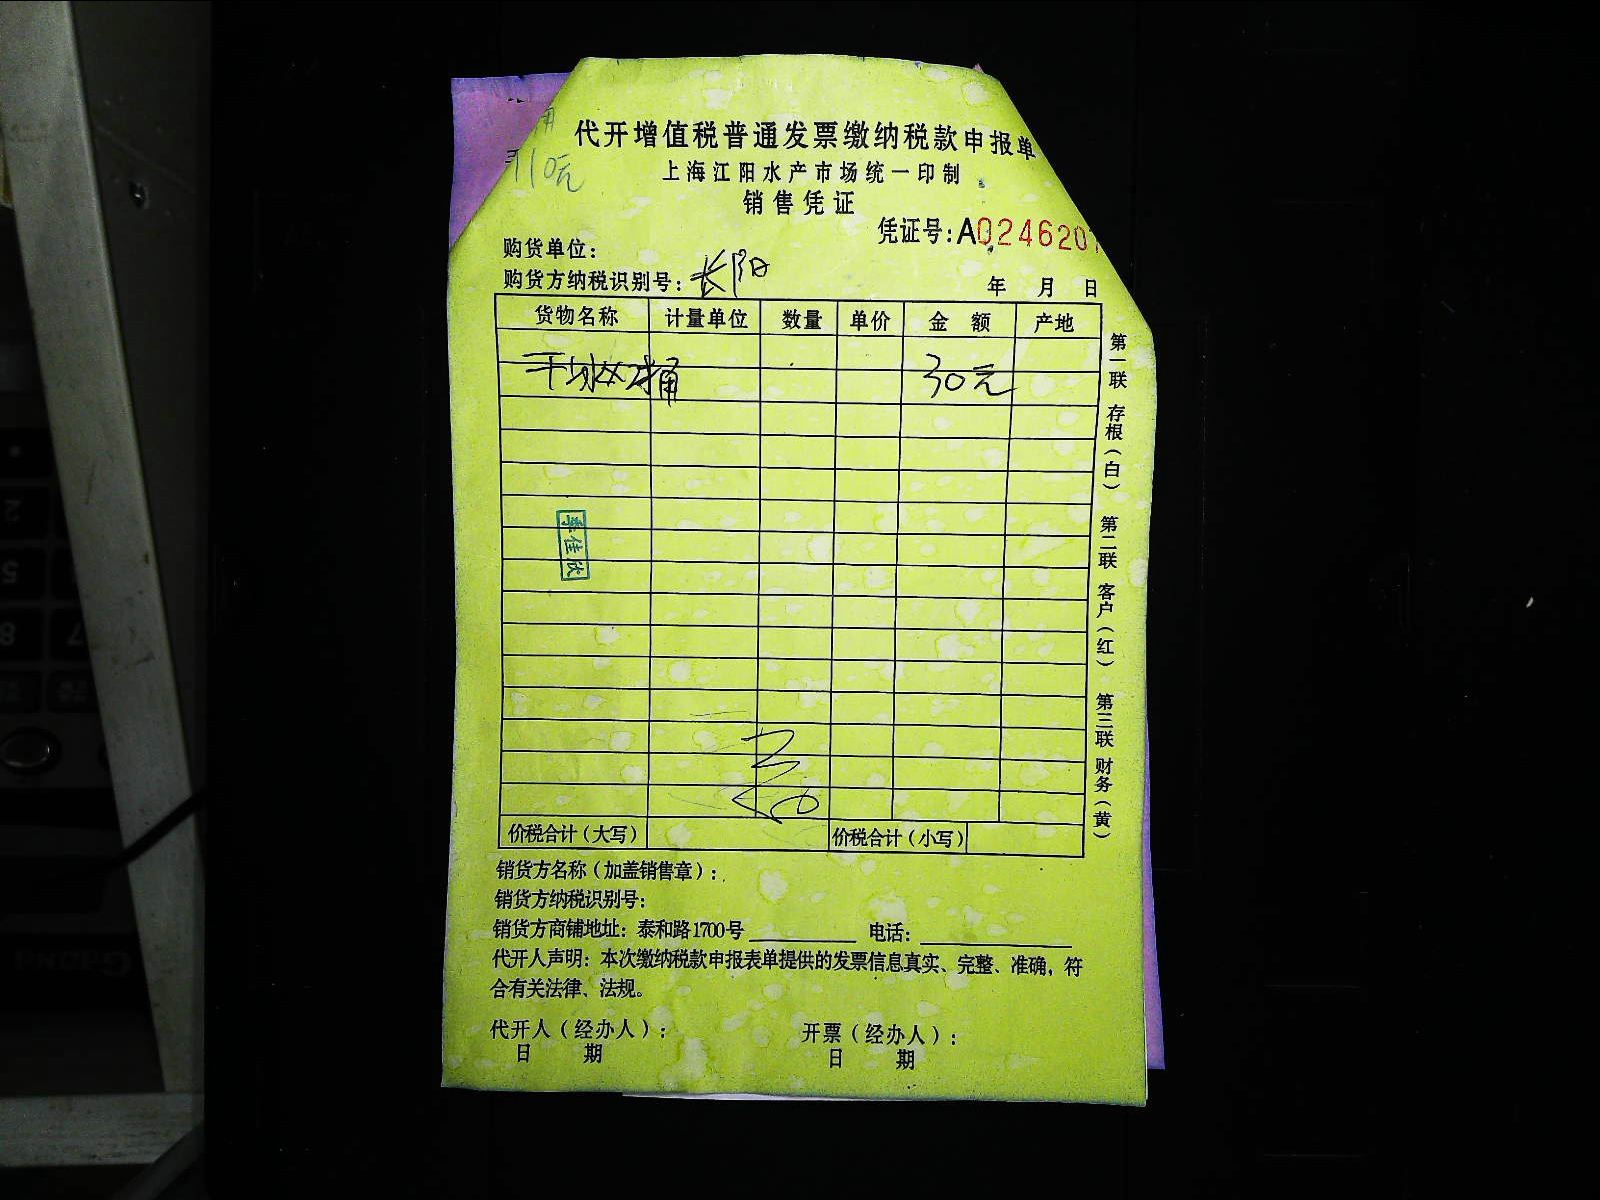 代开增值税普通发票缴纳税款申报单
上海江阳水产市场统一印制
销售凭证
凭证号:A0246207
购货单位:
购货方纳税识别号:长阳
年 月 日
货物名称 计量单位 数量 单价 金 额 产地
30元
李佳欣
价税合计(大写) 价税合计(小写)
销货方名称(加盖销售章):
销货方纳税识别号:
销货方商铺地址:泰和路1700号 电话:
代开人声明:本次缴纳税款申报表单提供的发票信息真实、完整、准确,符
合有关法律、法规。
代开人(经办人): 开票(经办人):
日 期 日 期
第一联 存根(白) 第二联 客户(红) 第三联 财务(黄)
110元